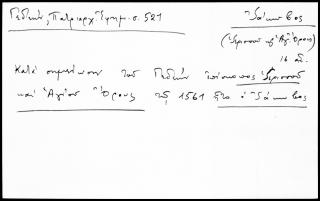 Γεδεών, Πατριαρχ. Ἐφημ. σ. 521
Ἰάκωβος
(Ἱερισσοῦ κ' Ἁγ. Ὄρους)
16 αἰ.
Κατὰ σημείωσιν τοῦ Γεδεὼν ἐπίσκοπος Ἱερισσοῦ
καὶ Ἁγίου Ὄρους τῷ 1561 ἦτο ὁ Ἰάκωβος